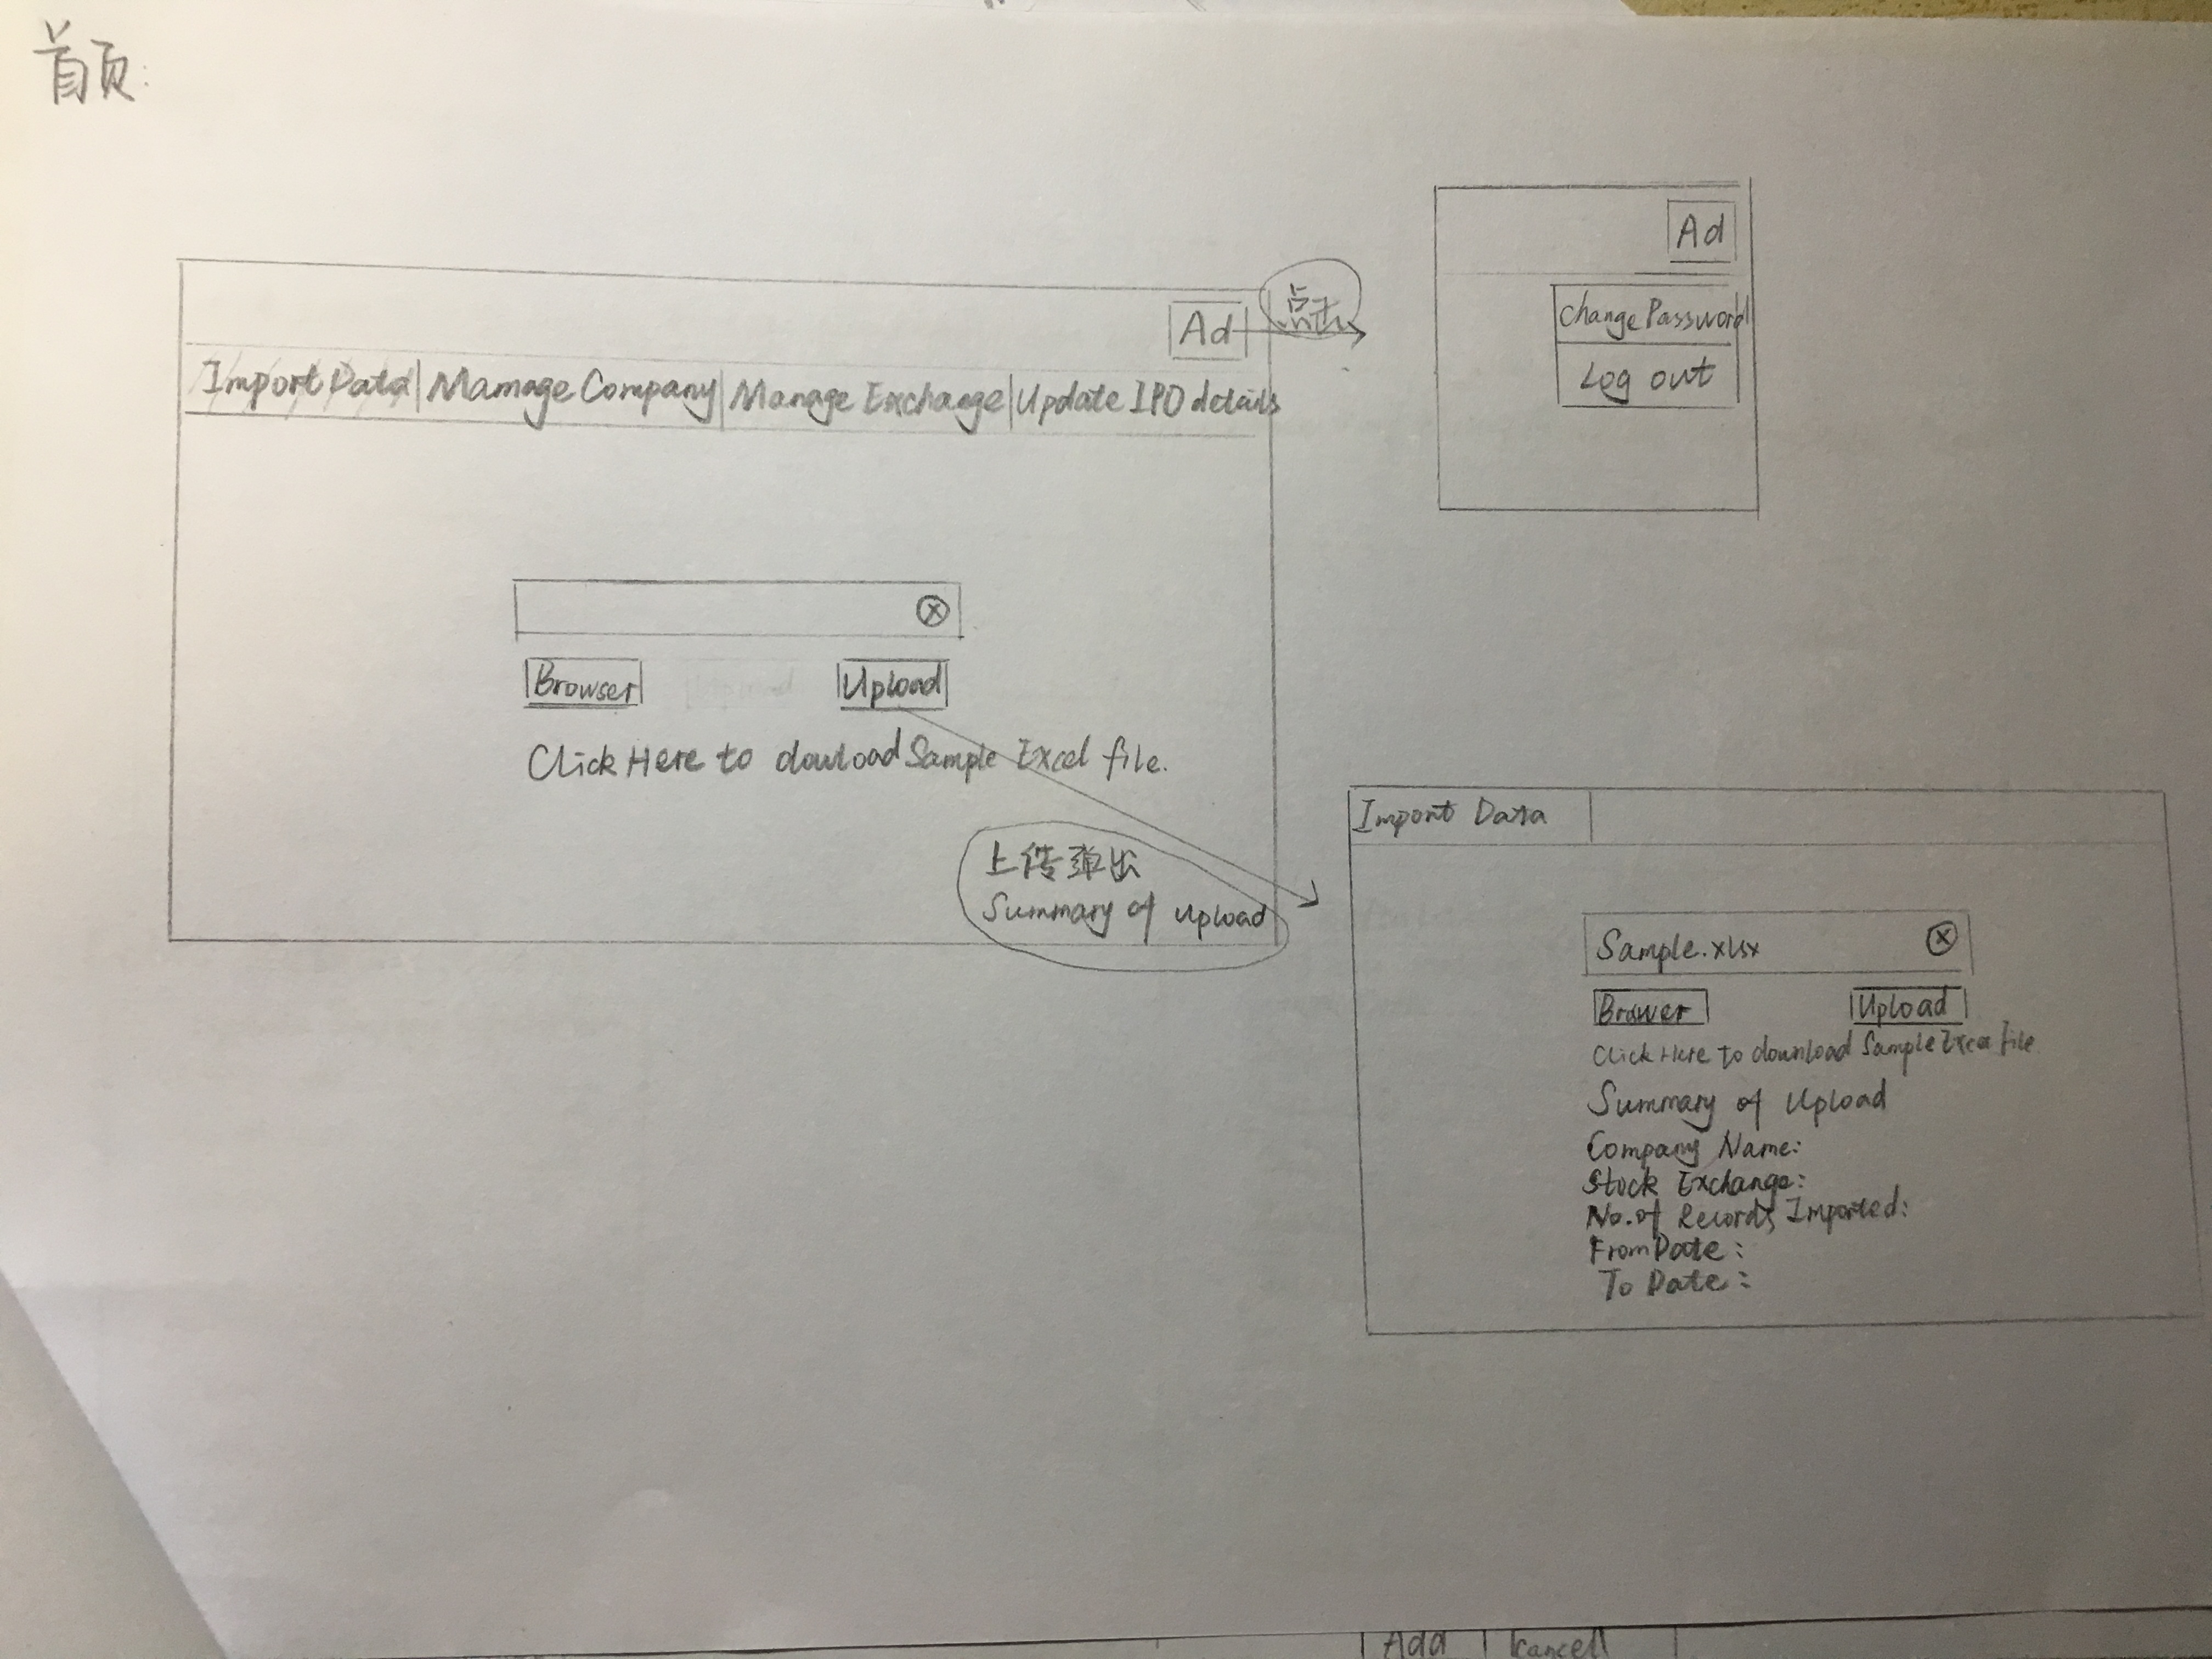 首页:
Ad
点击
Import Data
Mamage Company
Manage Exchange
Update IPO details
Browser
Upload
Click Here to dowload Sample Excel file.
上传弹出
Summary of upload
Ad
Change Password
Log out
Import Data
Sample.xlsx
Brower
Upload
Click Here to download Sample Excel file
Summary of Upload
Company Name:
Stock Exchange:
No. of Records Imported:
From Date:
To Date:
Add
Cancel